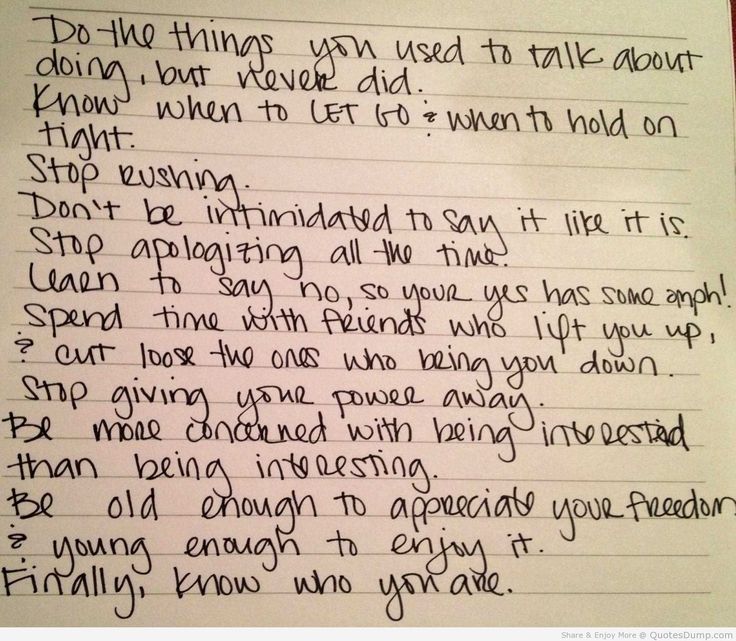 Do the things you used to talk about
doing, but never did.
Know when to LET GO & when to hold on
tight.
Stop rushing.
Don't be intimidated to say it like it is.
Stop apologizing all the time.
Learn to say no, so your yes has some omph!
Spend time with friends who lift you up,
& cut loose the ones who being you down.
Stop giving your power away.
Be more concerned with being interested
than being interesting.
Be old enough to appreciate your freedom
& young enough to enjoy it.
Finally, know who you are.
Share & Enjoy More @ QuotesDump.com